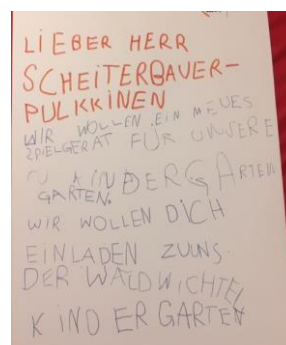 LIEBER HERR
SCHEITERBAUER-
PULKKINEN
WIR WOLLEN EIN NEUES
SPIELGERÄT FÜR UNSERE
KINDERGARTEN
GARTEN.
WIR WOLLEN DICH
EINLADEN ZUUNS.
DER WALDWICHTEL
KINDERGARTEN